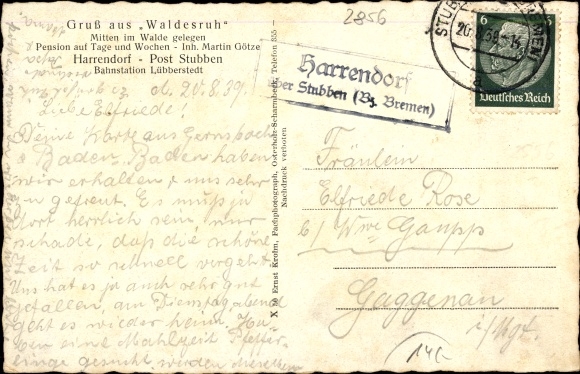 Gruß aus „Waldesruh"
Mitten im Walde gelegen
Pension auf Tage und Wochen - Inh. Martin Götze
Harrendorf - Post Stubben
Bahnstation Lübberstedt
d. 20.8.39.
Liebe Elfriede!
Deine Karte aus Gernsbach
& Baden-Baden haben
wir erhalten & uns sehr
gefreut. Es muß ja
dort herrlich sein, nur
schade, daß die schöne
Zeit so schnell vergeht.
Uns hat es ja auch sehr gut
gefallen, am Dienstag abend
geht es wieder heim. Ha-
ben eine Mahlzeit Pfeffer-
linge gesucht, werden
X 50 Ernst Krohn, Fachphotograph, Osterholz-Scharmbeck, Telefon 355
Nachdruck verboten
2856
Harrendorf
über Stubben (Bz. Bremen)
STUBBEN
20.8.39
BREMEN
6
Deutsches Reich
Fräulein
Elfriede Rose
c/ Wwe Gaupp
Gaggenau
i/Mgt.
14,-